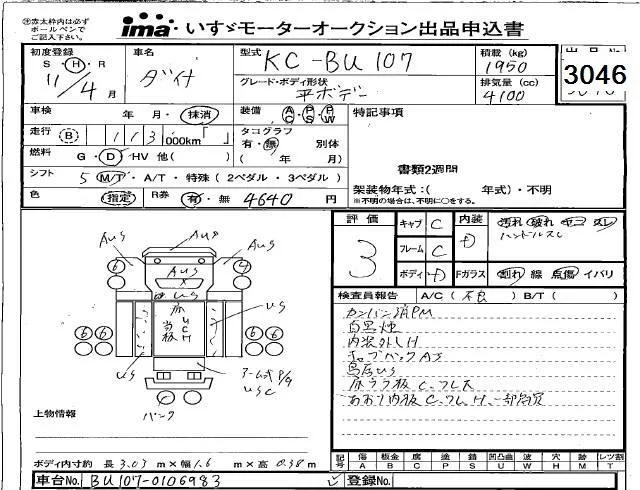 ㊟赤太枠内は必ずボールペンでご記入下さい。
ima いすゞモーターオークション出品申込書
初度登録 S・H・R 11/4月
車名 ダンプ
型式 KC-BU107
グレード・ボディ形状 平ボデー
積載 (kg) 1950
排気量 (cc) 4100
3046
車検 年 月・抹消
装備 AC PS PW
特記事項
走行 B 113,000km「 」
タコグラフ 有・無 別体
( 年 月)
燃料 G・D・HV 他( )
書類2週間
シフト 5 M/T・A/T・特殊 (2ペダル・3ペダル)
架装物年式:( 年式)・不明
※不明の場合は、不明に○をする。
色 指定
R券 有・無 4640 円
評価 3
キャブ C
フレーム C
ボディ D
内装 D
汚れ 破れ ヤコ スレ
ハンドルスレ
Fガラス 割れ 線 点傷 イバリ
検査員報告 A/C( 不良 ) B/T( )
カンバン消PM
白黒煙
内装外しH
キャブバックAS
鳥居US
床ララ板C、フレ大
あおり内板C、フレ、H、一部欠
AUS AUS AUS
AUS
US
6 4
6 6 6 6
US
US
床 UCH
荷板
アーム式P/G
USC
パンク
上物情報
ボディ内寸約 長 3.03 m×幅 1.6 m×高 0.38 m
記号 傷 A 板金 B 腐 C 塗 P 錆 S 凹凸曲 U 波 W 穴 H 跡 M レツ割 T
車台No. BU107-0106983
登録No.